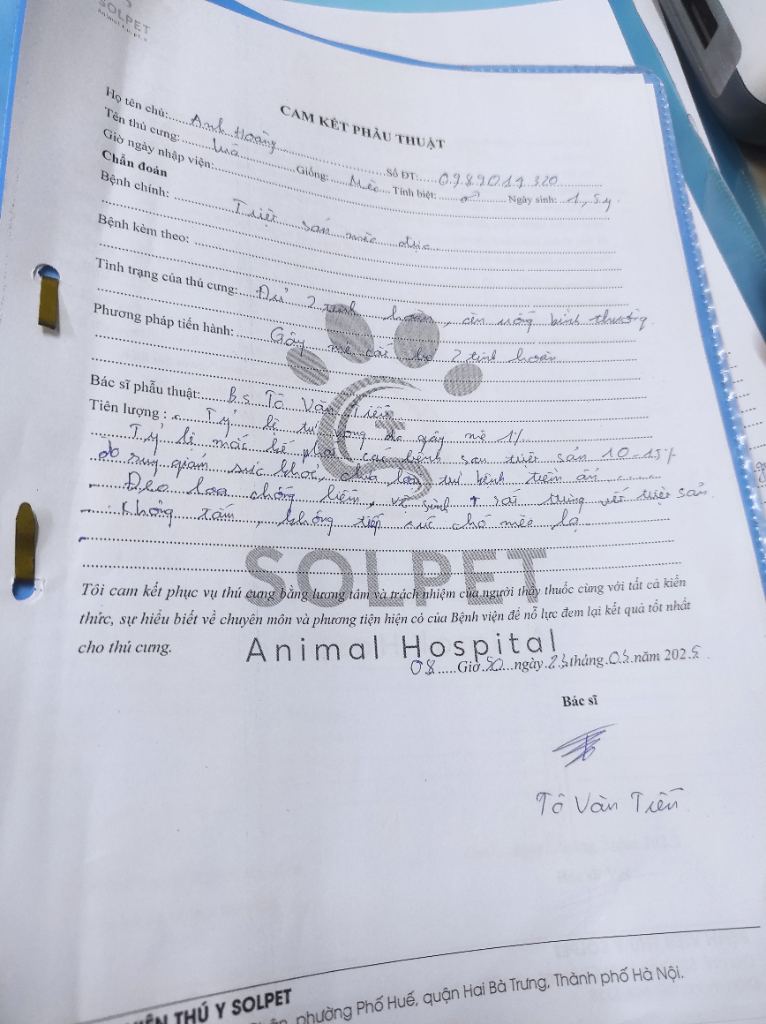 SOLPET
CAM KẾT PHẪU THUẬT
Họ tên chủ: Anh Hoàng Số ĐT: 0989019320
Tên thú cưng: Giống: Mèo Tính biệt: ♂ Ngày sinh: 1,5y
Giờ ngày nhập viện:
Chẩn đoán
Bệnh chính: Triệt sản mèo đực
Bệnh kèm theo:
Tình trạng của thú cưng: Đủ 2 tinh hoàn, ăn uống bình thường
Phương pháp tiến hành: Gây mê cắt bỏ 2 tinh hoàn
Bác sĩ phẫu thuật: B.s Tô Văn Tiến
Tiên lượng: Tỷ lệ tử vong do gây mê 1%
Tỷ lệ mắc các bệnh sau triệt sản 10-15%
do suy giảm sức khoẻ, bệnh tiền ẩn
- Đeo loa chống liếm, vệ sinh + sát trùng vết triệt sản
- Không tắm, không tiếp xúc chó mèo lạ
SOLPET
Tôi cam kết phục vụ thú cưng bằng lương tâm và trách nhiệm của người thầy thuốc cùng với tất cả kiến
thức, sự hiểu biết về chuyên môn và phương tiện hiện có của Bệnh viện để nỗ lực đem lại kết quả tốt nhất
cho thú cưng.
Animal Hospital
08 Giờ 30 ngày tháng 05 năm 2025
Bác sĩ
Tô Văn Tiến
VIỆN THÚ Y SOLPET
phường Phố Huế, quận Hai Bà Trưng, Thành phố Hà Nội.